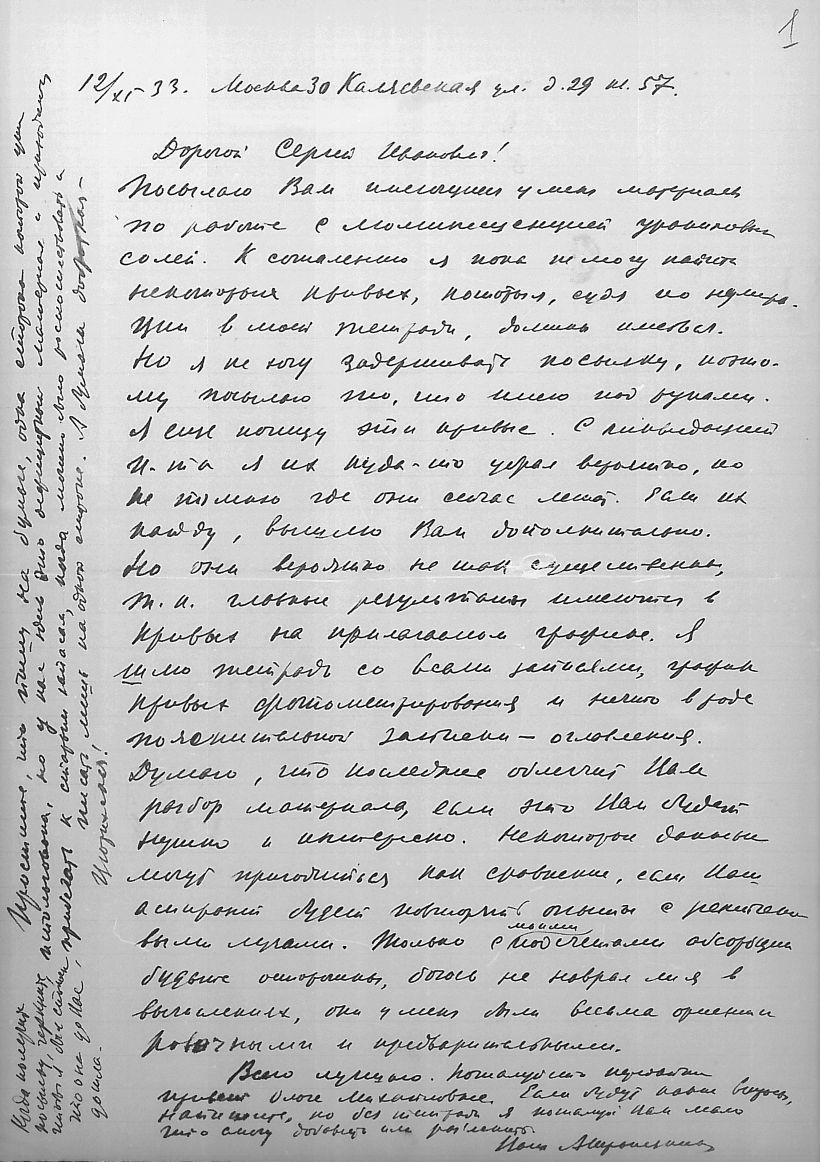 1
12/XI-33. Москва 30 Каляевская ул. д. 29 кв. 57.
Дорогой Сергей Иванович!
Посылаю Вам имеющиеся у меня материалы
по работе с люминесценцией ураниловых
солей. К сожалению я пока не могу найти
некоторых кривых, которые, судя по нумера-
ции в моей тетради, должны иметься.
Но я не хочу задерживать посылку, поэто-
му посылаю то, что имею под руками.
Я еще поищу эти кривые. С ликвидацией
И-та я их куда-то убрал вероятно, но
не помню где они сейчас лежат. Если их
найду, вышлю Вам дополнительно.
Но они вероятно не так существенны,
т.к. главные результаты имеются в
кривых на прилагаемом графике. Я
шлю тетрадь со всеми записями, график
кривых фотометрирования и нечто вроде
пояснительной записки – оглавления.
Думаю, что последнее облегчит Вам
разбор материала, если это Вам будет
нужно и интересно. Некоторые данные
могут пригодиться как сравнение, если Ваш
аспирант будет повторять опыты с рентгено-
выми лучами. Только с моими подсчетами абсорбции
будьте осторожны, боюсь не наврал ли я в
вычислениях, они у меня были весьма ориенти-
ровочными и предварительными.
Всего лучшего. Пожалуйста передайте
привет Ольге Михайловне. Если будут какие вопросы,
напишите, но без тетради я пожалуй Вам мало
что смогу добавить или раз'яснить.
Ваш
Когда получите
посылку черкните,
что она до Вас
дошла.
Простите, что пишу на бумаге, одна сторона которой уже
использована, но у нас здесь это дефицитный материал и приходится
прибегать к старым запасам, когда можно было роскошествовать и
писать лишь на одной стороне. А бумага добротная –